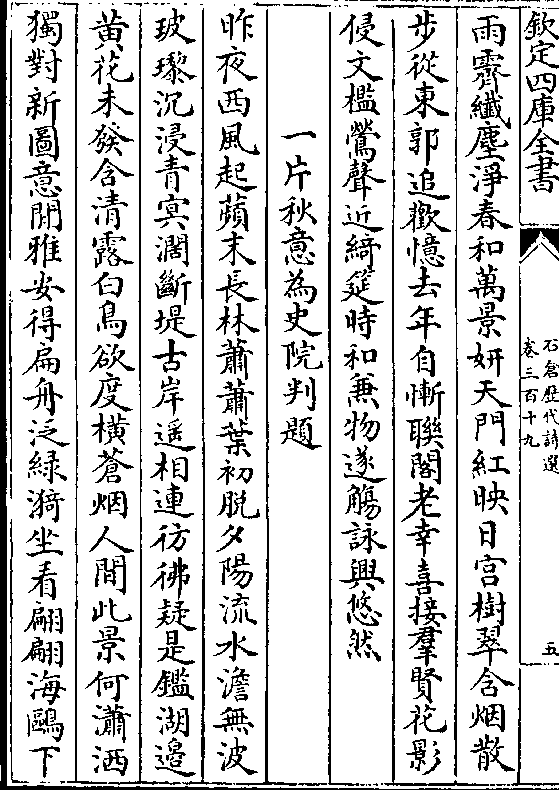 欽定四庫全書
石倉歷代詩選
卷三百十九
五
雨霽纎塵淨春和萬景妍天門紅映日宫樹翠含烟散
步從東郭追歡憶去年自慚聯閣老幸喜接羣賢花影
侵文檻鶯聲近綺筵時和兼物遂觴詠興悠然
一片秋意為史院判題
昨夜西風起蘋末長林蕭蕭葉初脱夕陽流水澹無波
玻瓈沉浸青冥濶斷堤古岸遥相連彷彿疑是鑑湖邉
黄花未發含清露白鳥欲度横蒼烟人間此景何瀟洒
獨對新圖意閒雅安得扁舟泛緑漪坐看翩翩海鷗下